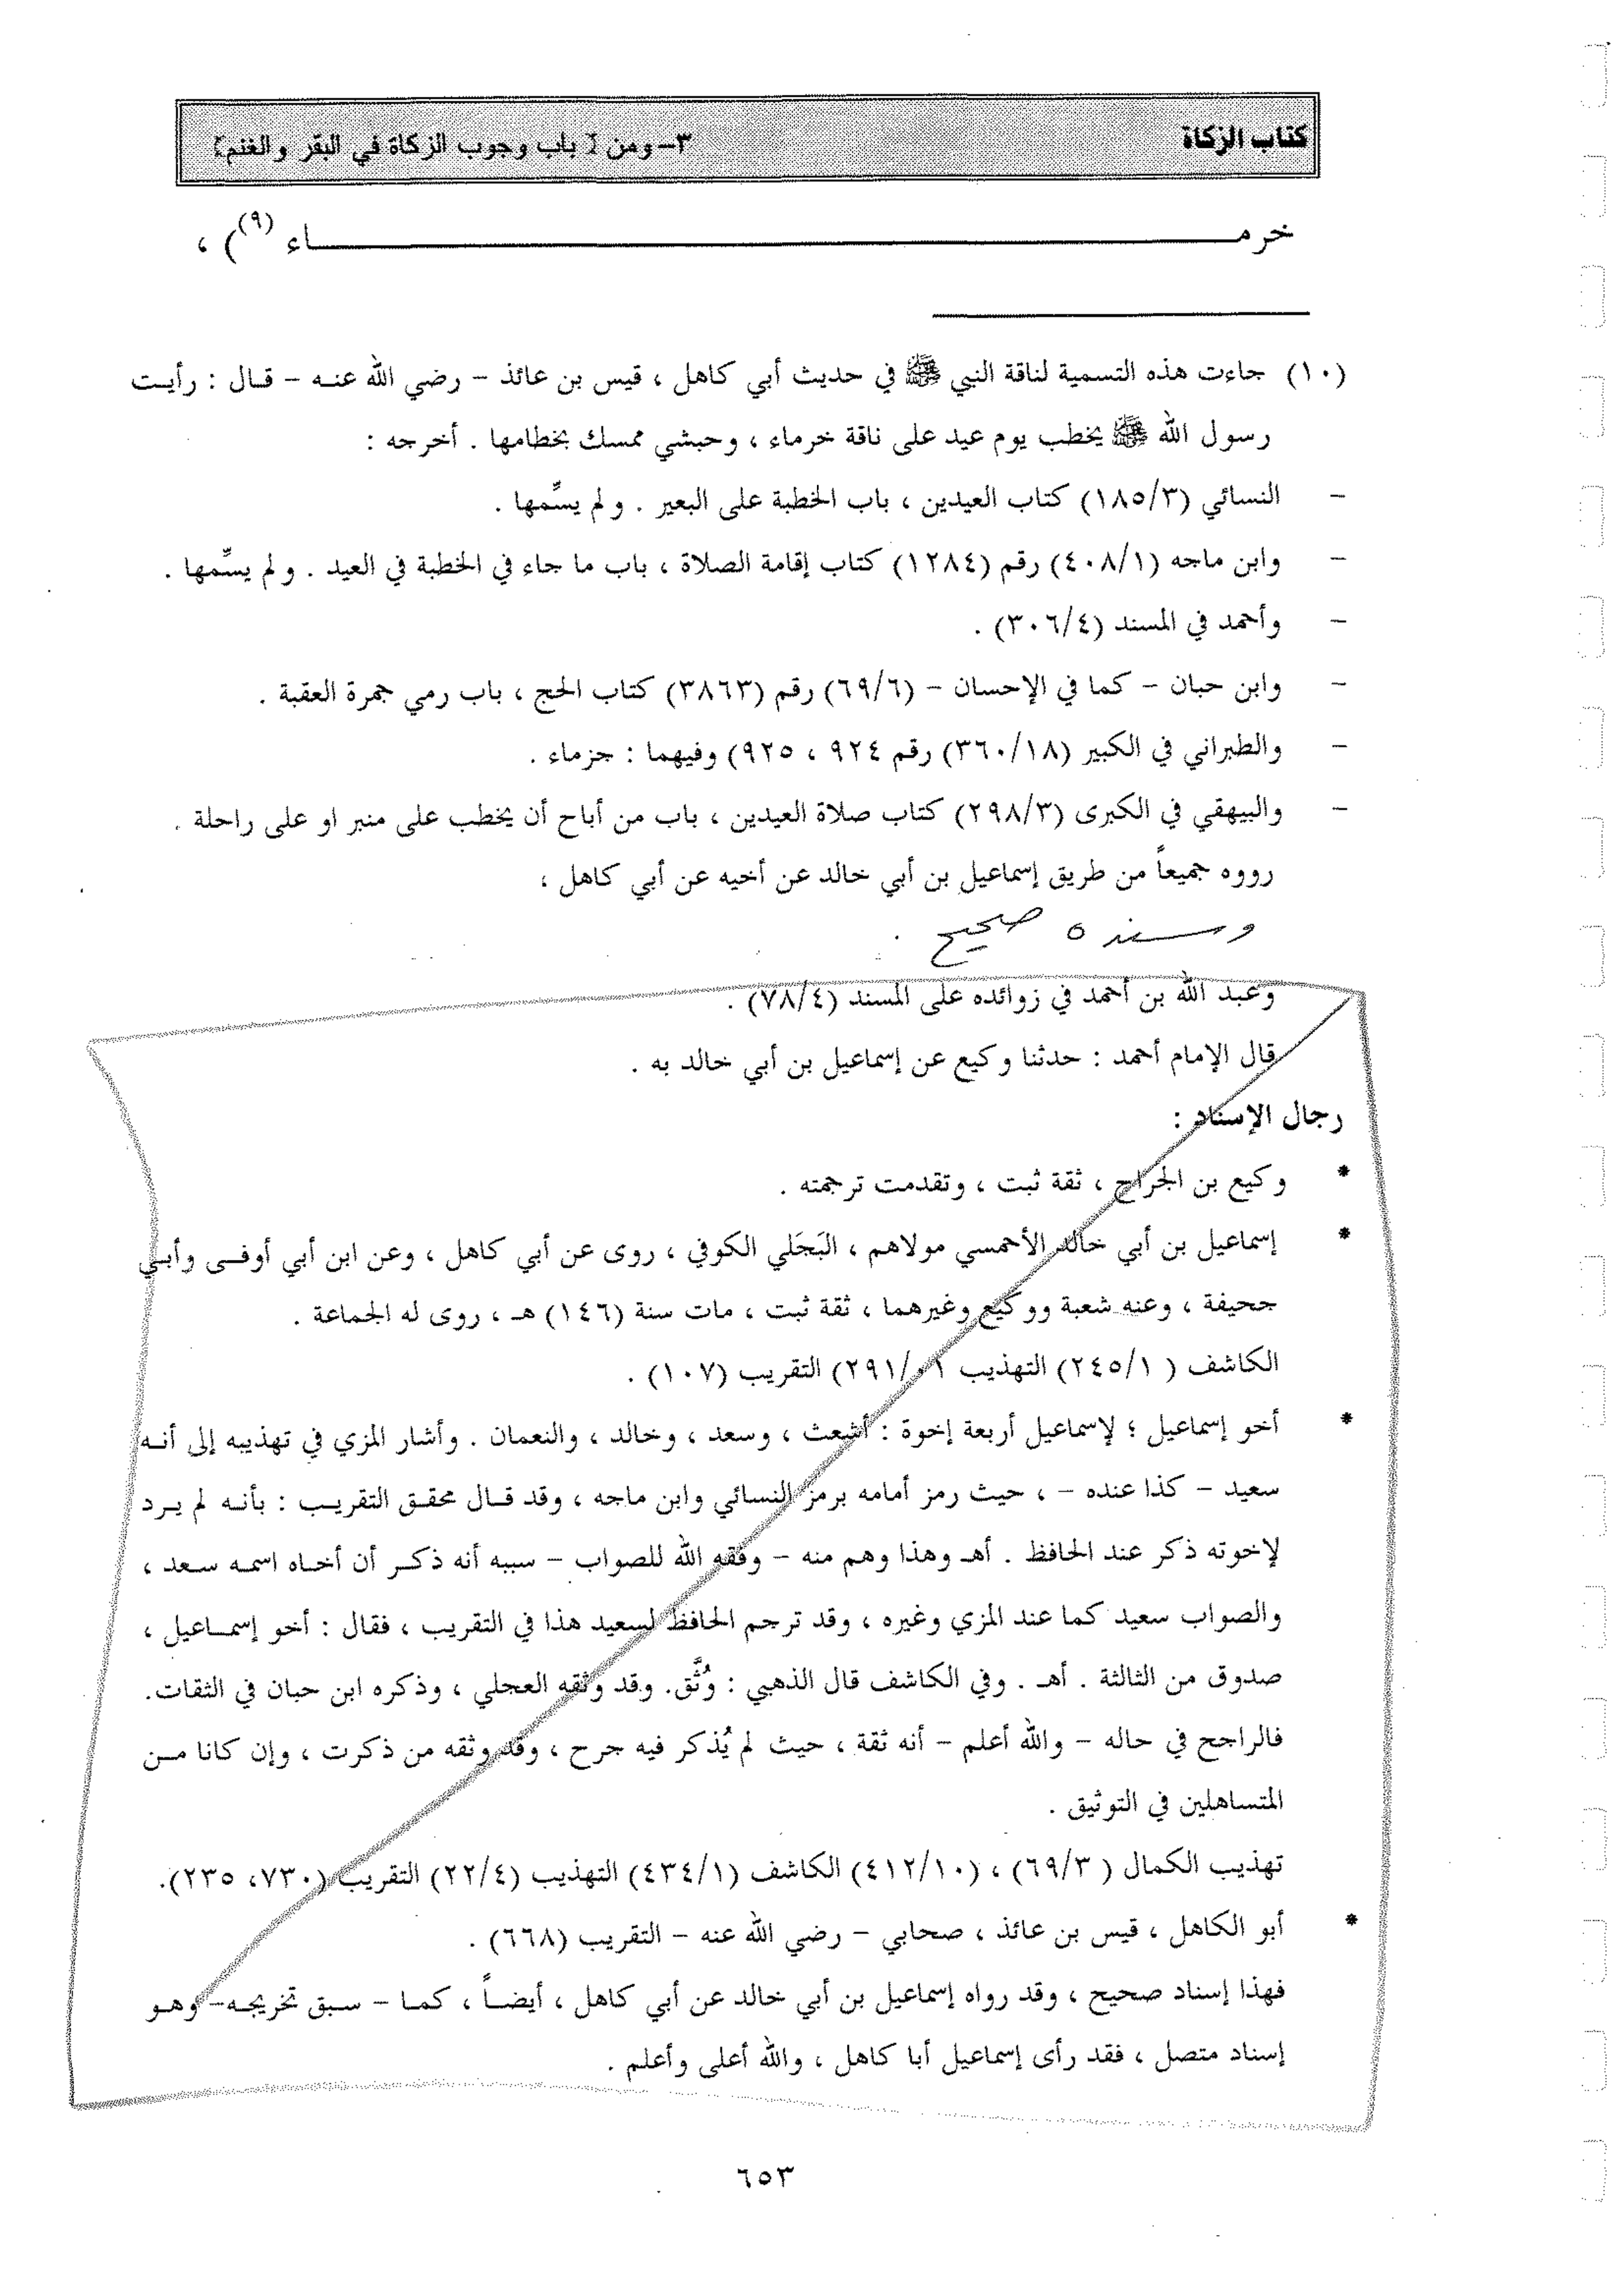 كتاب الزكاة ٣- ومن [ باب وجوب الزكاة في البقر والغنم]
خرمـــاء (٩)) ،
(١٠) جاءت هذه التسمية لناقة النبي ﷺ في حديث أبي كاهل ، قيس بن عائذ – رضي الله عنـه – قـال : رأيـت
رسول الله ﷺ يخطب يوم عيد على ناقة خرماء ، وحبشي ممسك بخطامها . أخرجه :
– النسائي (١٨٥/٣) كتاب العيدين ، باب الخطبة على البعير . ولم يسِّمها .
– وابن ماجه (٤٠٨/١) رقم (١٢٨٤) كتاب إقامة الصلاة ، باب ما جاء في الخطبة في العيد . ولم يسِّمها .
– وأحمد في المسند (٣٠٦/٤) .
– وابن حبان – كما في الإحسان – (٦٩/٦) رقم (٣٨٦٣) كتاب الحج ، باب رمي جمرة العقبة .
– والطبراني في الكبير (٣٦٠/١٨) رقم ٩٢٤ ، ٩٢٥) وفيهما : جزماء .
– والبيهقي في الكبرى (٢٩٨/٣) كتاب صلاة العيدين ، باب من أباح أن يخطب على منبر او على راحلة .
رووه جميعاً من طريق إسماعيل بن أبي خالد عن أخيه عن أبي كاهل ،
وسنده صحيح .
وعبد الله بن أحمد في زوائده على المسند (٧٨/٤) .
قال الإمام أحمد : حدثنا وكيع عن إسماعيل بن أبي خالد به .
رجال الإسناد :
* وكيع بن الجراح ، ثقة ثبت ، وتقدمت ترجمته .
* إسماعيل بن أبي خالد الأحمسي مولاهم ، البَجَلي الكوفي ، روى عن أبي كاهل ، وعن ابن أبي أوفـى وأبـي
جحيفة ، وعنه شعبة ووكيع وغيرهما ، ثقة ثبت ، مات سنة (١٤٦) هـ ، روى له الجماعة .
الكاشف ( ٢٤٥/١) التهذيب ٢٩١/١) التقريب (١٠٧) .
* أخو إسماعيل ؛ لإسماعيل أربعة إخوة : أشعث ، وسعد ، وخالد ، والنعمان . وأشار المزي في تهذيبه إلى أنـه
سعيد – كذا عنده – ، حيث رمز أمامه برمز النسائي وابن ماجه ، وقد قـال محقـق التقريـب : بأنـه لم يـرد
لإخوته ذكر عند الحافظ . أهـ وهذا وهم منه – وفقه الله للصواب – سببه أنه ذكـر أن أخـاه اسمـه سـعد ،
والصواب سعيد كما عند المزي وغيره ، وقد ترجم الحافظ لسعيد هذا في التقريب ، فقال : أخو إسمـاعيل ،
صدوق من الثالثة . أهـ . وفي الكاشف قال الذهبي : وُثَّق. وقد وثقه العجلي ، وذكره ابن حبان في الثقات.
فالراجح في حاله – والله أعلم – أنه ثقة ، حيث لم يُذكر فيه جرح ، وقد وثقه من ذكرت ، وإن كانا مـن
المتساهلين في التوثيق .
تهذيب الكمال ( ٦٩/٣) ، (٤١٢/١٠) الكاشف (٤٣٤/١) التهذيب (٢٢/٤) التقريب (٧٣٠، ٢٣٥).
* أبو الكاهل ، قيس بن عائذ ، صحابي – رضي الله عنه – التقريب (٦٦٨) .
فهذا إسناد صحيح ، وقد رواه إسماعيل بن أبي خالد عن أبي كاهل ، أيضـاً ، كمـا – سـبق تخريجـه– وهـو
إسناد متصل ، فقد رأى إسماعيل أبا كاهل ، والله أعلى وأعلم .
٦٥٣